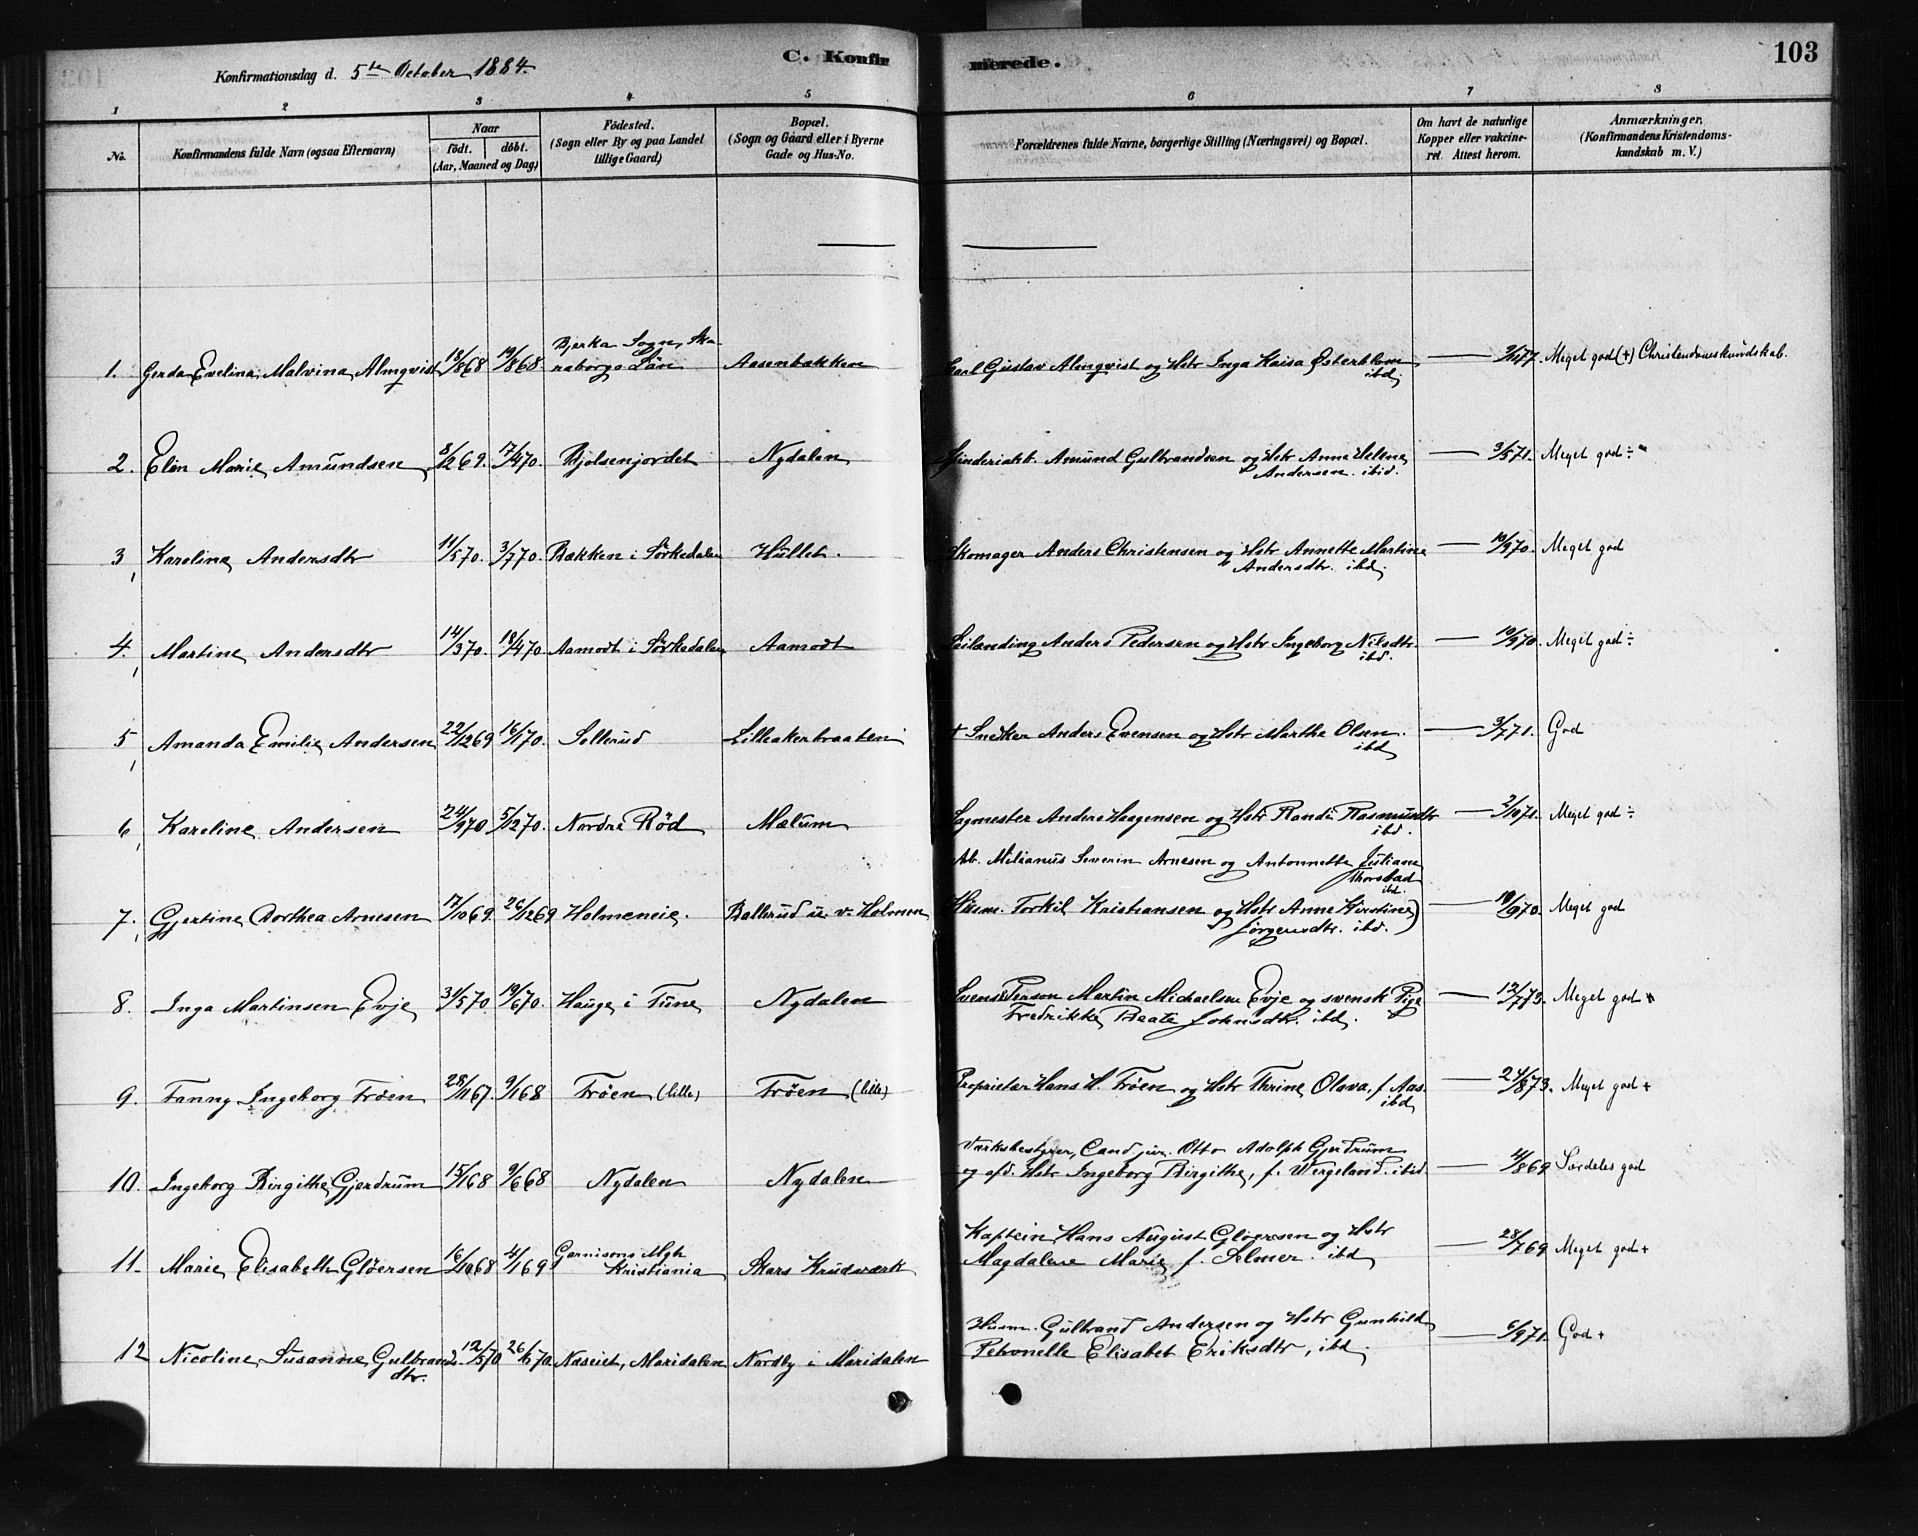 Konfirmationsdag d. 5te October 1884.
C. Konfirmerede.
103
1 2 3 4 5 6 7 8
No.
Konfirmandens fulde Navn (ogsaa Efternavn)
Naar
födt. döbt.
(Aar, Maaned og Dag)
Födested.
(Sogn eller By og paa Landet
tillige Gaard)
Bopæl.
(Sogn og Gaard eller i Byerne
Gade og Hus-No.
Forældrenes fulde Navne, borgerlige Stilling (Næringsvei) og Bopæl.
Om havt de naturlige
Kopper eller vakcine-
ret. Attest herom.
Anmærkninger.
(Konfirmandens Kristendoms-
kundskab m. V.)
1. Gerda Evelina Malvina Almqvist 18/868 19/868 Bjerka Sogn, Ska-
raborgs Län Aasenbakken Carl Gustav Almqvist og Hstr Inga Kaisa Østerblom
ibd. — Meget god (+) Christendomskundskab.
2. Elin Marie Amundsen 8/1269. 17/470. Bjølsenjordet Nydalen Spinderiarb. Amund Gulbrandsen og Hstr Anne Helene
Andersen. ibid. — 3/571. Meget god ÷
3, Karoline Andersdtr 11/570. 3/770. Bækken i Sørkedalen Hullet. Skomager Anders Christensen og Hstr Annette Martine
Andersdtr. ibd. — 10/970. Meget god
4, Martine Andersdtr 14/370. 18/470. Aamodt i Sørkedalen Aamodt Leilænding Anders Pedersen og Hstr Ingeborg Nilsdtr.
ibd. — 10/970. Meget god ÷
5, Amanda Emilie Andersen 22/1269 16/170. Sollerud Lilleakerbraaten + Snekker Anders Evensen og Hstr Marthe Olsen.
ibd — 3/771. God
6, Karoline Andersen 24/970 5/1270. Nordre Rød Mælum Sagmester Anders Haagensen og Hstr Randi Rasmusdtr
ibd. — 2/1071. Meget god ÷
Arb. Milianus Severin Arnesen og Antonnette Juliane
Thorstad
ibd.
7, Gjertine Dorthea Arnesen 17/1069. 26/1269 Holmeneie. Ballerud u. v. Holmen Husm. Torkil Kristiansen og Hstr Anne Kirstine)
Jörgensdtr. ibd. — 10/970. Meget god
8. Inga Martinsen Evje 31/570 19/670. Hauge i Tune Nydalen Svensk Person Martin Michaelsen Evje og svensk Pige
Fredrikke Beate Johnsdtr. ibd. — 12/773. Meget god +
9. Fanny Ingeborg Frøen 28/1167. 9/168 Frøen (lille) Frøen (lille) Proprietær Hans H. Frøen og Hstr Thrine Olava, f. Aas.
ibd — 24/873. Meget god +
10. Ingeborg Birgithe Gjerdrum 15/168 9/668 Nydalen Nydalen Værksbestyrer, Cand. jur. Otto Adolph Gjerdrum
og afd. Hstr Ingeborg Birgithe, f. Wergeland. ibid — 4/869 Særdeles god
11. Marie Elisabeth Gløersen 16/1068 4/169 Garnisons Mgh
Kristiania Skars Krudværk Kaptein Hans August Gløersen og Hstr
Magdalene Marie f. Selmer. ibd — 28/769 Meget god +
12 Nicoline Susanne Gulbrands-
dtr. 12/570 26/670. Næseiet, Maridalen Nordby i Maridalen Husm. Gulbrand Andersen og Hstr Gunhild
Petronelle Elisabet Eriksdtr, ibd. — 6/971. God +